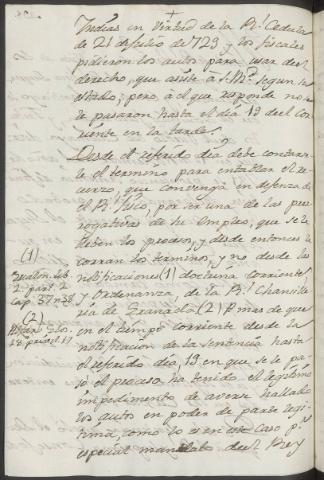 Indias en Virtud de la Rl. Cedula
de 21 de Julio de 723 y los fiscales
pidieron los autos para usar del
derecho, que asiste a S. M. segun su
estado; pero, à el que responde no se
le pasaron hasta el dia 13 del cor
riente en la tarde.
Desde el referido dia debe contarse
le el termino para entablar el re
curso, que convenga en defensa de
el Rl. Fisco, por ser una de las prer
rogativas de su Empleo, que se le
lleven los procesos, y desde entonces le
corran los terminos, y no desde las
notificaciones (1) doctrina corriente
y ordenanza de la Rl. Chancille
ria de Granada (2) mas de que
en el tiempo corriente desde la
notificacion de la sentencia hasta
el referido dia 13 en que se le pa
só el proceso, ha tenido el legitimo
impedimento de averse hallado
los autos en poder de parte legi
tima, como lo es en este caso pr.
especial mandato del Rey
(1)
2 part. 2
cap. 37 n. 38
(2)